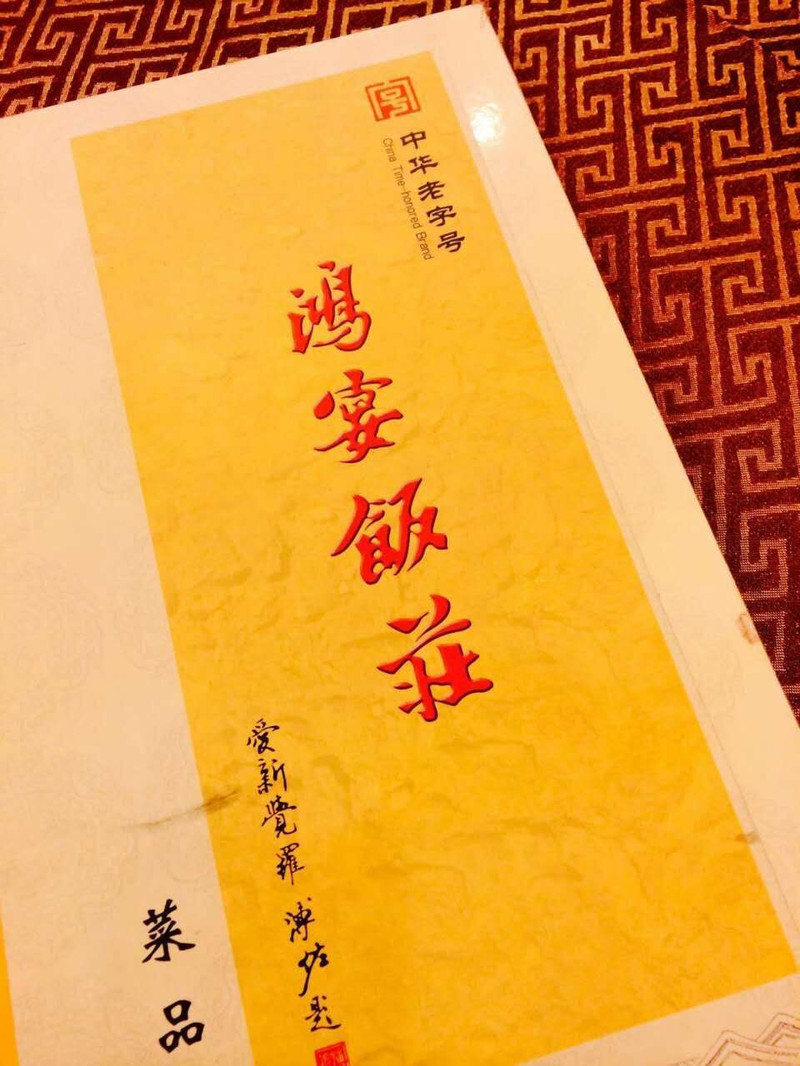 中华老字号
China Time-honored Brand
鴻宴飯莊
愛新覺羅 溥佐题
菜品